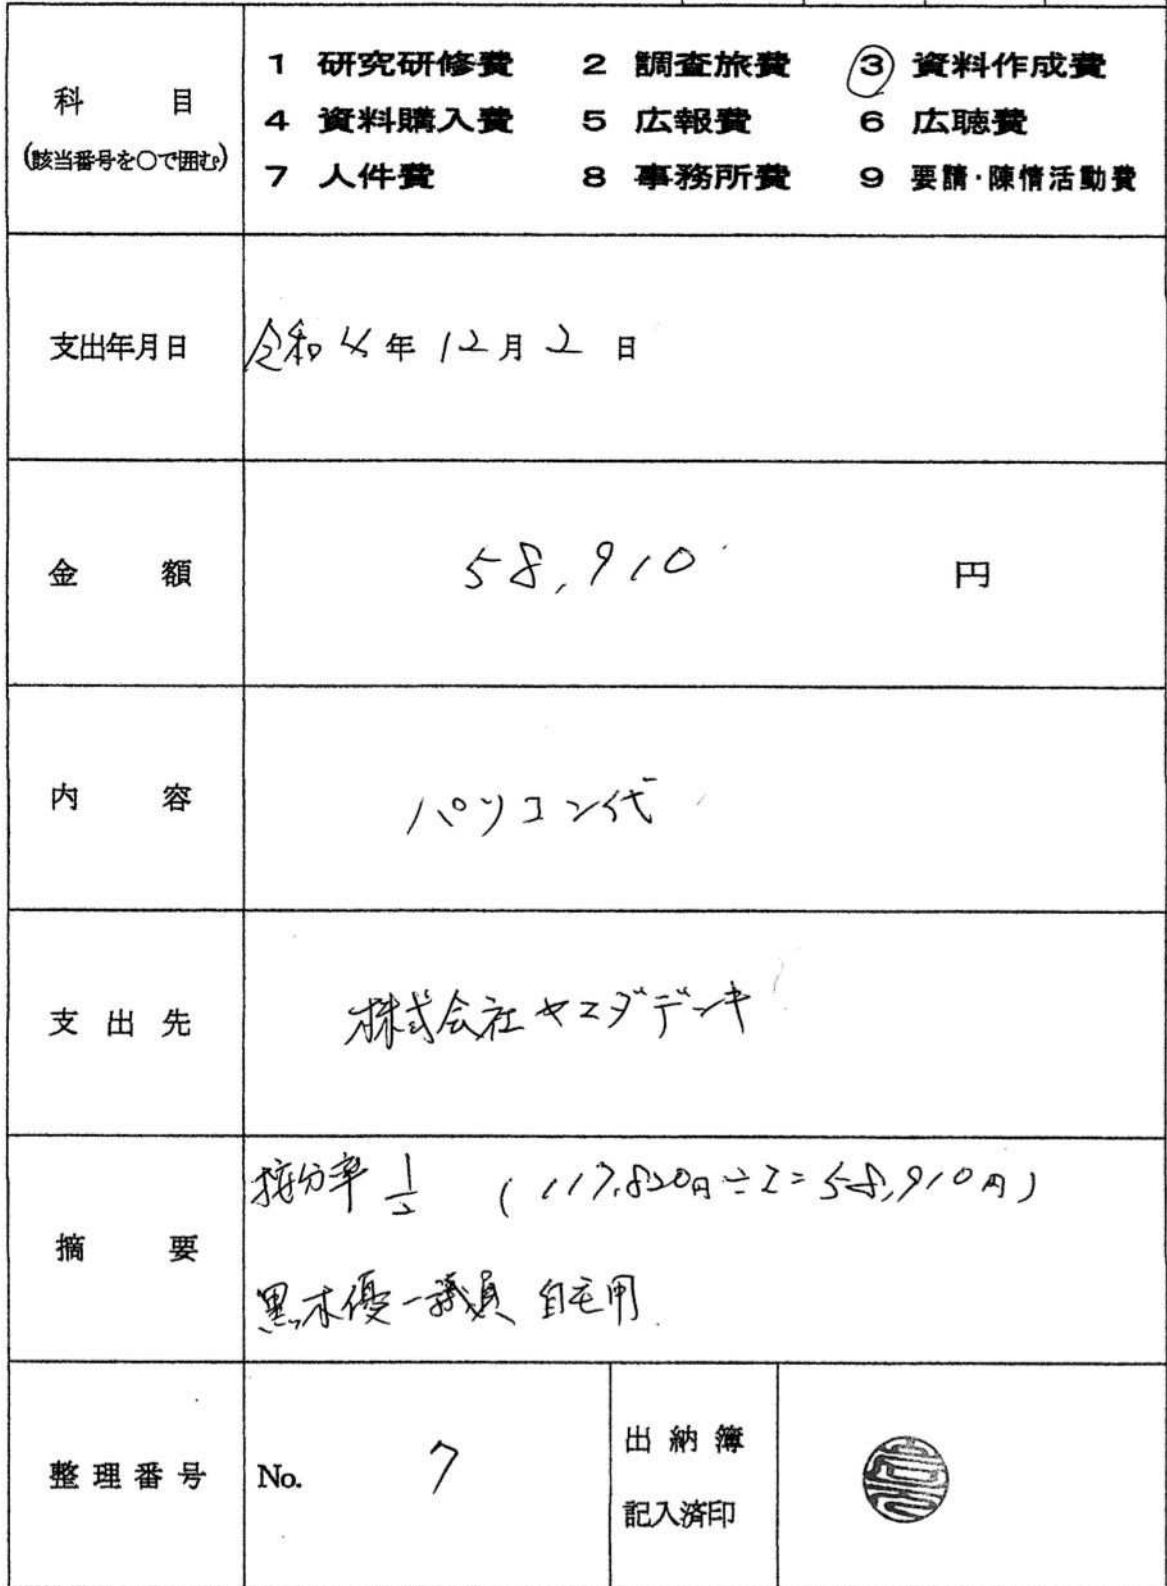 科 目
(該当番号を○で囲む)
1 研究研修費 2 調査旅費 ③ 資料作成費
4 資料購入費 5 広報費 6 広聴費
7 人件費 8 事務所費 9 要請・陳情活動費
支出年月日
令和4年12月2日
金 額
58,910 円
内 容
パソコン代
支出先
株式会社ヤマダデンキ
摘 要
按分率 1/2 (117,820円÷2=58,910円)
黒木優一議員 自宅用
整理番号
No. 7
出納簿
記入済印